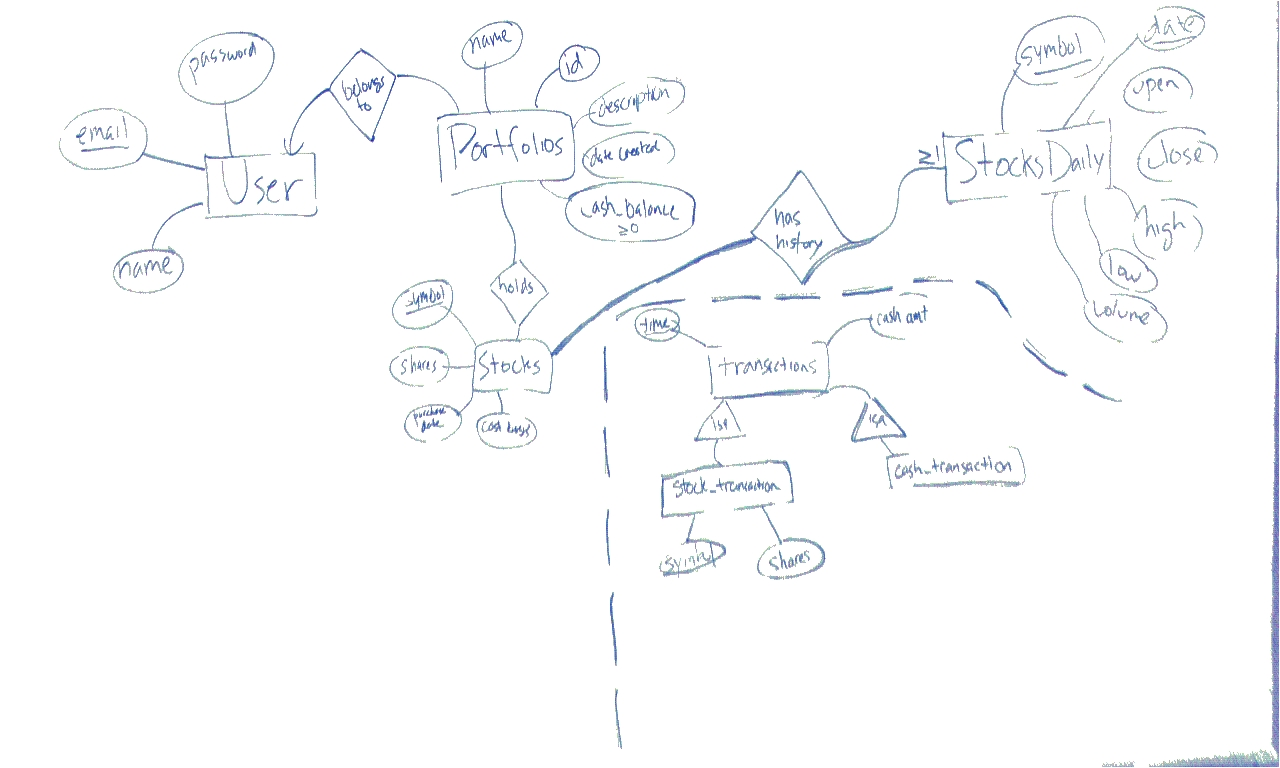 password
email
User
name
belongs
to
name
id
Portfolios
description
date created
cash_balance
≥0
holds
symbol
shares
Stocks
purchase
date
cost basis
has
history
≥1
StocksDaily
symbol
date
open
close
high
low
volume
time
cash amt
transactions
isa
isa
stock_transaction
cash_transaction
symbol
shares